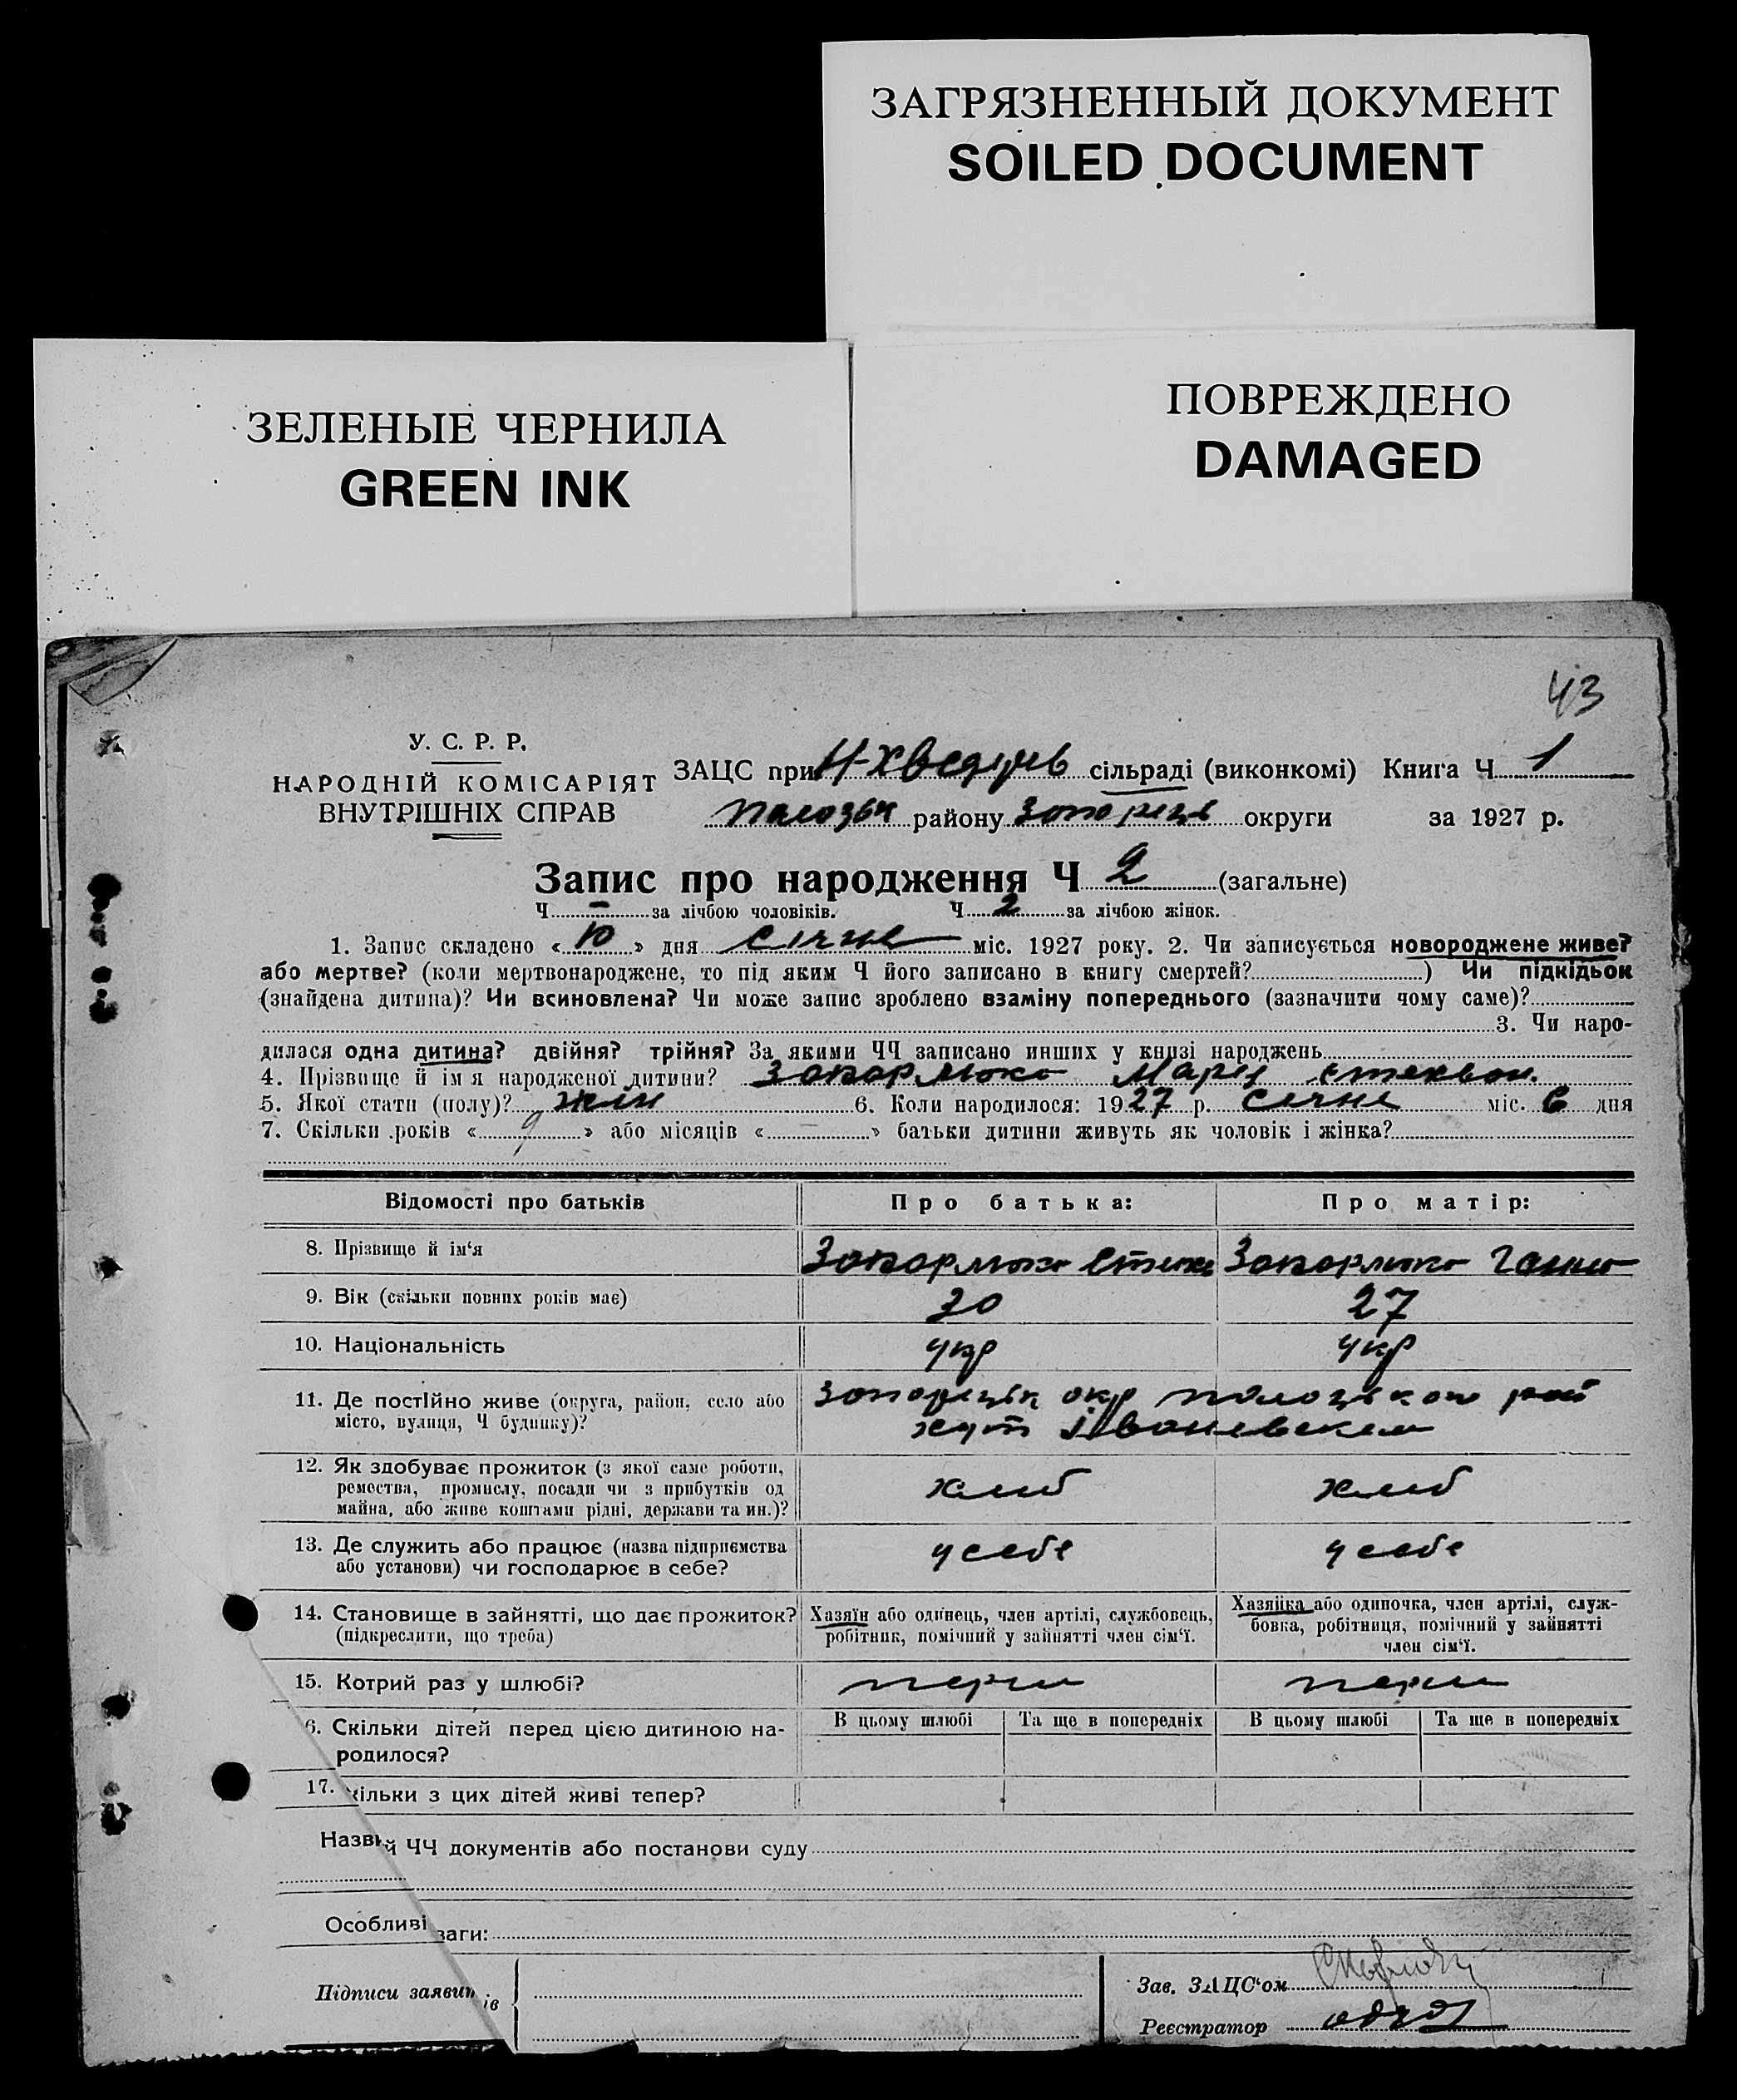 ЗАГРЯЗНЕННЫЙ ДОКУМЕНТ
SOILED DOCUMENT
ЗЕЛЕНЫЕ ЧЕРНИЛА
GREEN INK
ПОВРЕЖДЕНО
DAMAGED
43
У. С. Р. Р.
НАРОДНІЙ КОМІСАРІЯТ
ВНУТРІШНІХ СПРАВ
ЗАЦС при сільраді (виконкомі) Книга Ч 1
району округи за 1927 р.
Запис про народження Ч 2 (загальне)
Ч – за лічбою чоловіків. Ч 2 за лічбою жінок.
1. Запис складено « 10 » дня січне міс. 1927 року. 2. Чи записується новороджене живе?
або мертве? (коли мертвонароджене, то під яким Ч його записано в книгу смертей? ) Чи підкідьок
(знайдена дитина)? Чи всиновлена? Чи може запис зроблено взаміну попереднього (зазначити чому саме)?
3. Чи наро-
дилася одна дитина? двійня? трійня? За якими ЧЧ записано инших у книзі народжень
4. Прізвище й ім'я народженої дитини?
5. Якої стати (полу)? жін 6. Коли народилося: 1927 р. січне міс. 6 дня
7. Скільки років « 9 » або місяців « » батьки дитини живуть як чоловік і жінка?
Відомості про батьків Про батька: Про матір:
8. Прізвище й ім'я
9. Вік (скільки повних років має) 30 27
10. Національність укр укр
11. Де постійно живе (округа, район, село або
місто, вулиця, Ч будинку)?
12. Як здобуває прожиток (з якої саме роботи,
ремества, промислу, посади чи з прибутків од
майна, або живе коштами рідні, держави та ин.)? хліб хліб
13. Де служить або працює (назва підприємства
або установи) чи господарює в себе? у себе у себе
14. Становище в зайнятті, що дає прожиток?
(підкреслити, що треба)
Хазяїн або одинець, член артілі, службовець,
робітник, помічний у зайнятті член сім'ї.
Хазяйка або одиночка, член артілі, служ-
бовка, робітниця, помічний у зайнятті
член сім'ї.
15. Котрий раз у шлюбі? перш перш
6. Скільки дітей перед цією дитиною на-
родилося?
В цьому шлюбі Та ще в попередніх В цьому шлюбі Та ще в попередніх
17. кільки з цих дітей живі тепер?
Назви й ЧЧ документів або постанови суду
Особливі ваги:
Підписи заявників
Зав. ЗАЦС'ом
Реєстратор